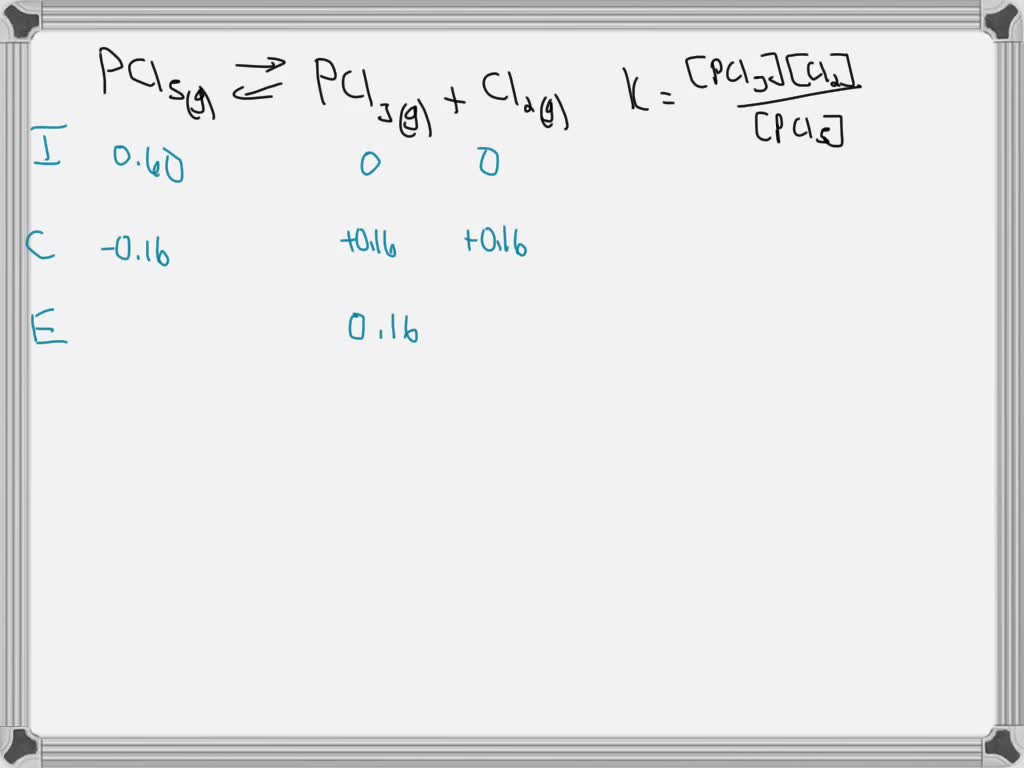 PCl₅(g) ⇌ PCl₃(g) + Cl₂(g) K = [PCl₃][Cl₂] / [PCl₅]
I 0.60 0 0
C -0.16 +0.16 +0.16
E 0.16